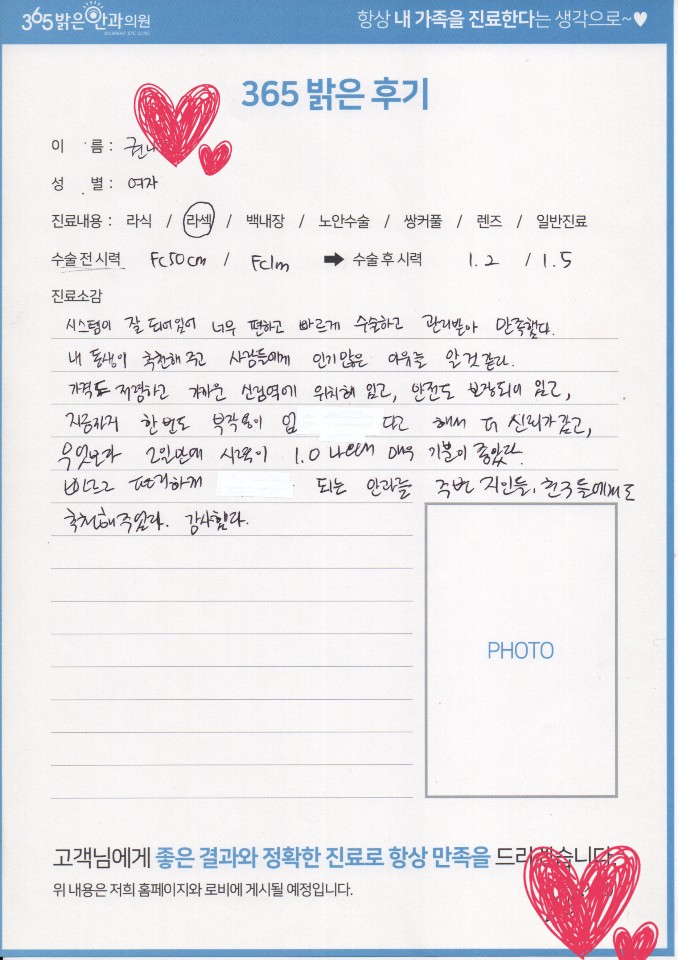 365밝은안과의원
365 BRIGHT EYE CLINIC
항상 내 가족을 진료한다는 생각으로~♥
365 밝은 후기
이 름 : 권나
성 별 : 여자
진료내용 : 라식 / 라섹 / 백내장 / 노안수술 / 쌍커풀 / 렌즈 / 일반진료
수술 전 시력 FC50cm / FC1m ➡ 수술 후 시력 1.2 / 1.5
진료소감
시스템이 잘 되어있어 너무 편하고 빠르게 수술하고 관리받아 만족했다.
내 동생이 추천해 주고 사람들에게 인기 많은 이유를 알 것 같다.
가격도 저렴하고 가까운 신림역에 위치해 있고, 안전도 보장되어 있고,
지금까지 한 번도 부작용이 없 다고 해서 더 신뢰가 갔고,
무엇보다 2일만에 시력이 1.0 나와서 매우 기분이 좋았다.
빠르고 편리하게 되는 안과를 주변 지인들, 친구들에게도
추천해주었다. 감사합니다.
PHOTO
고객님에게 좋은 결과와 정확한 진료로 항상 만족을 드리겠습니다.
위 내용은 저희 홈페이지와 로비에 게시될 예정입니다.